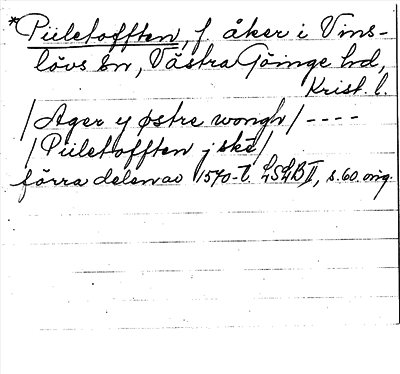 *Piiletofften, f. åker i Vins-
lövs sn, Västra Göinge hd,
Krist. l.
/Ager y østre wongh/ ----
/Piiletofften j ske/
förra delen av 1570-t. LSLB II, s. 60 orig.